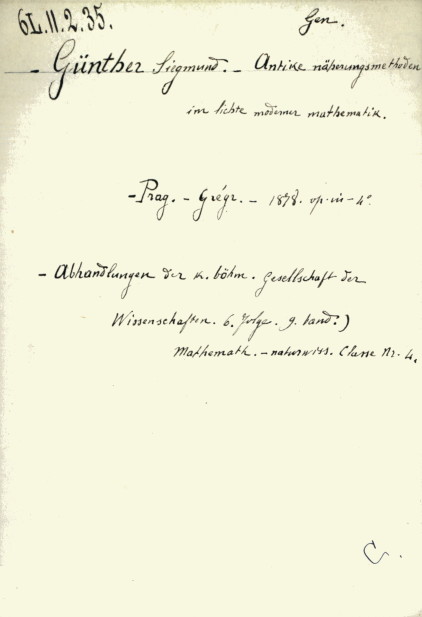 6L.11.2.35.
Gen.
- Günther Siegmund. - Antike näherungsmethoden
im lichte moderner mathematik.
- Prag. - Grégr. - 1878. op. in - 4°.
- Abhandlungen der k. böhm. Gesellschaft der
Wissenschaften. 6. folge. 9. band.)
Mathemath. - naturwiss. Classe Nr. 4.
C.